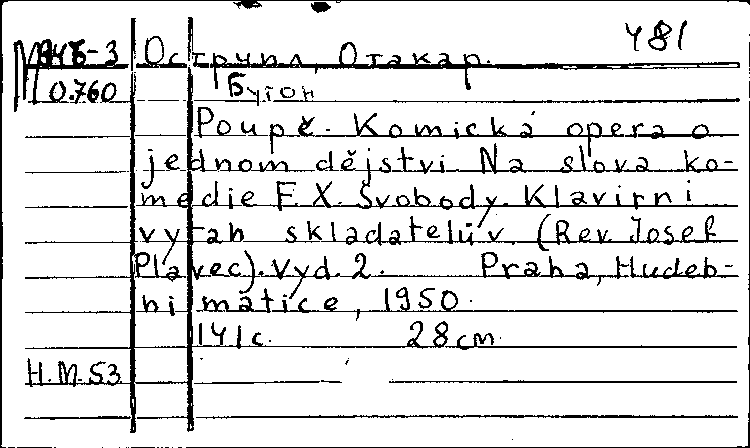 481
Острчил, Отакар.
0.760 Бутон
Poupě. Komická opera o
jednom dějstvi. Na slova ko-
medie F. X. Svobody. Klavirni
vytah skladatelův. (Rev. Josef
Plavec). Vyd. 2. Praha, Hudeb-
ni matice, 1950.
141 с. 28 см
Н.М.53